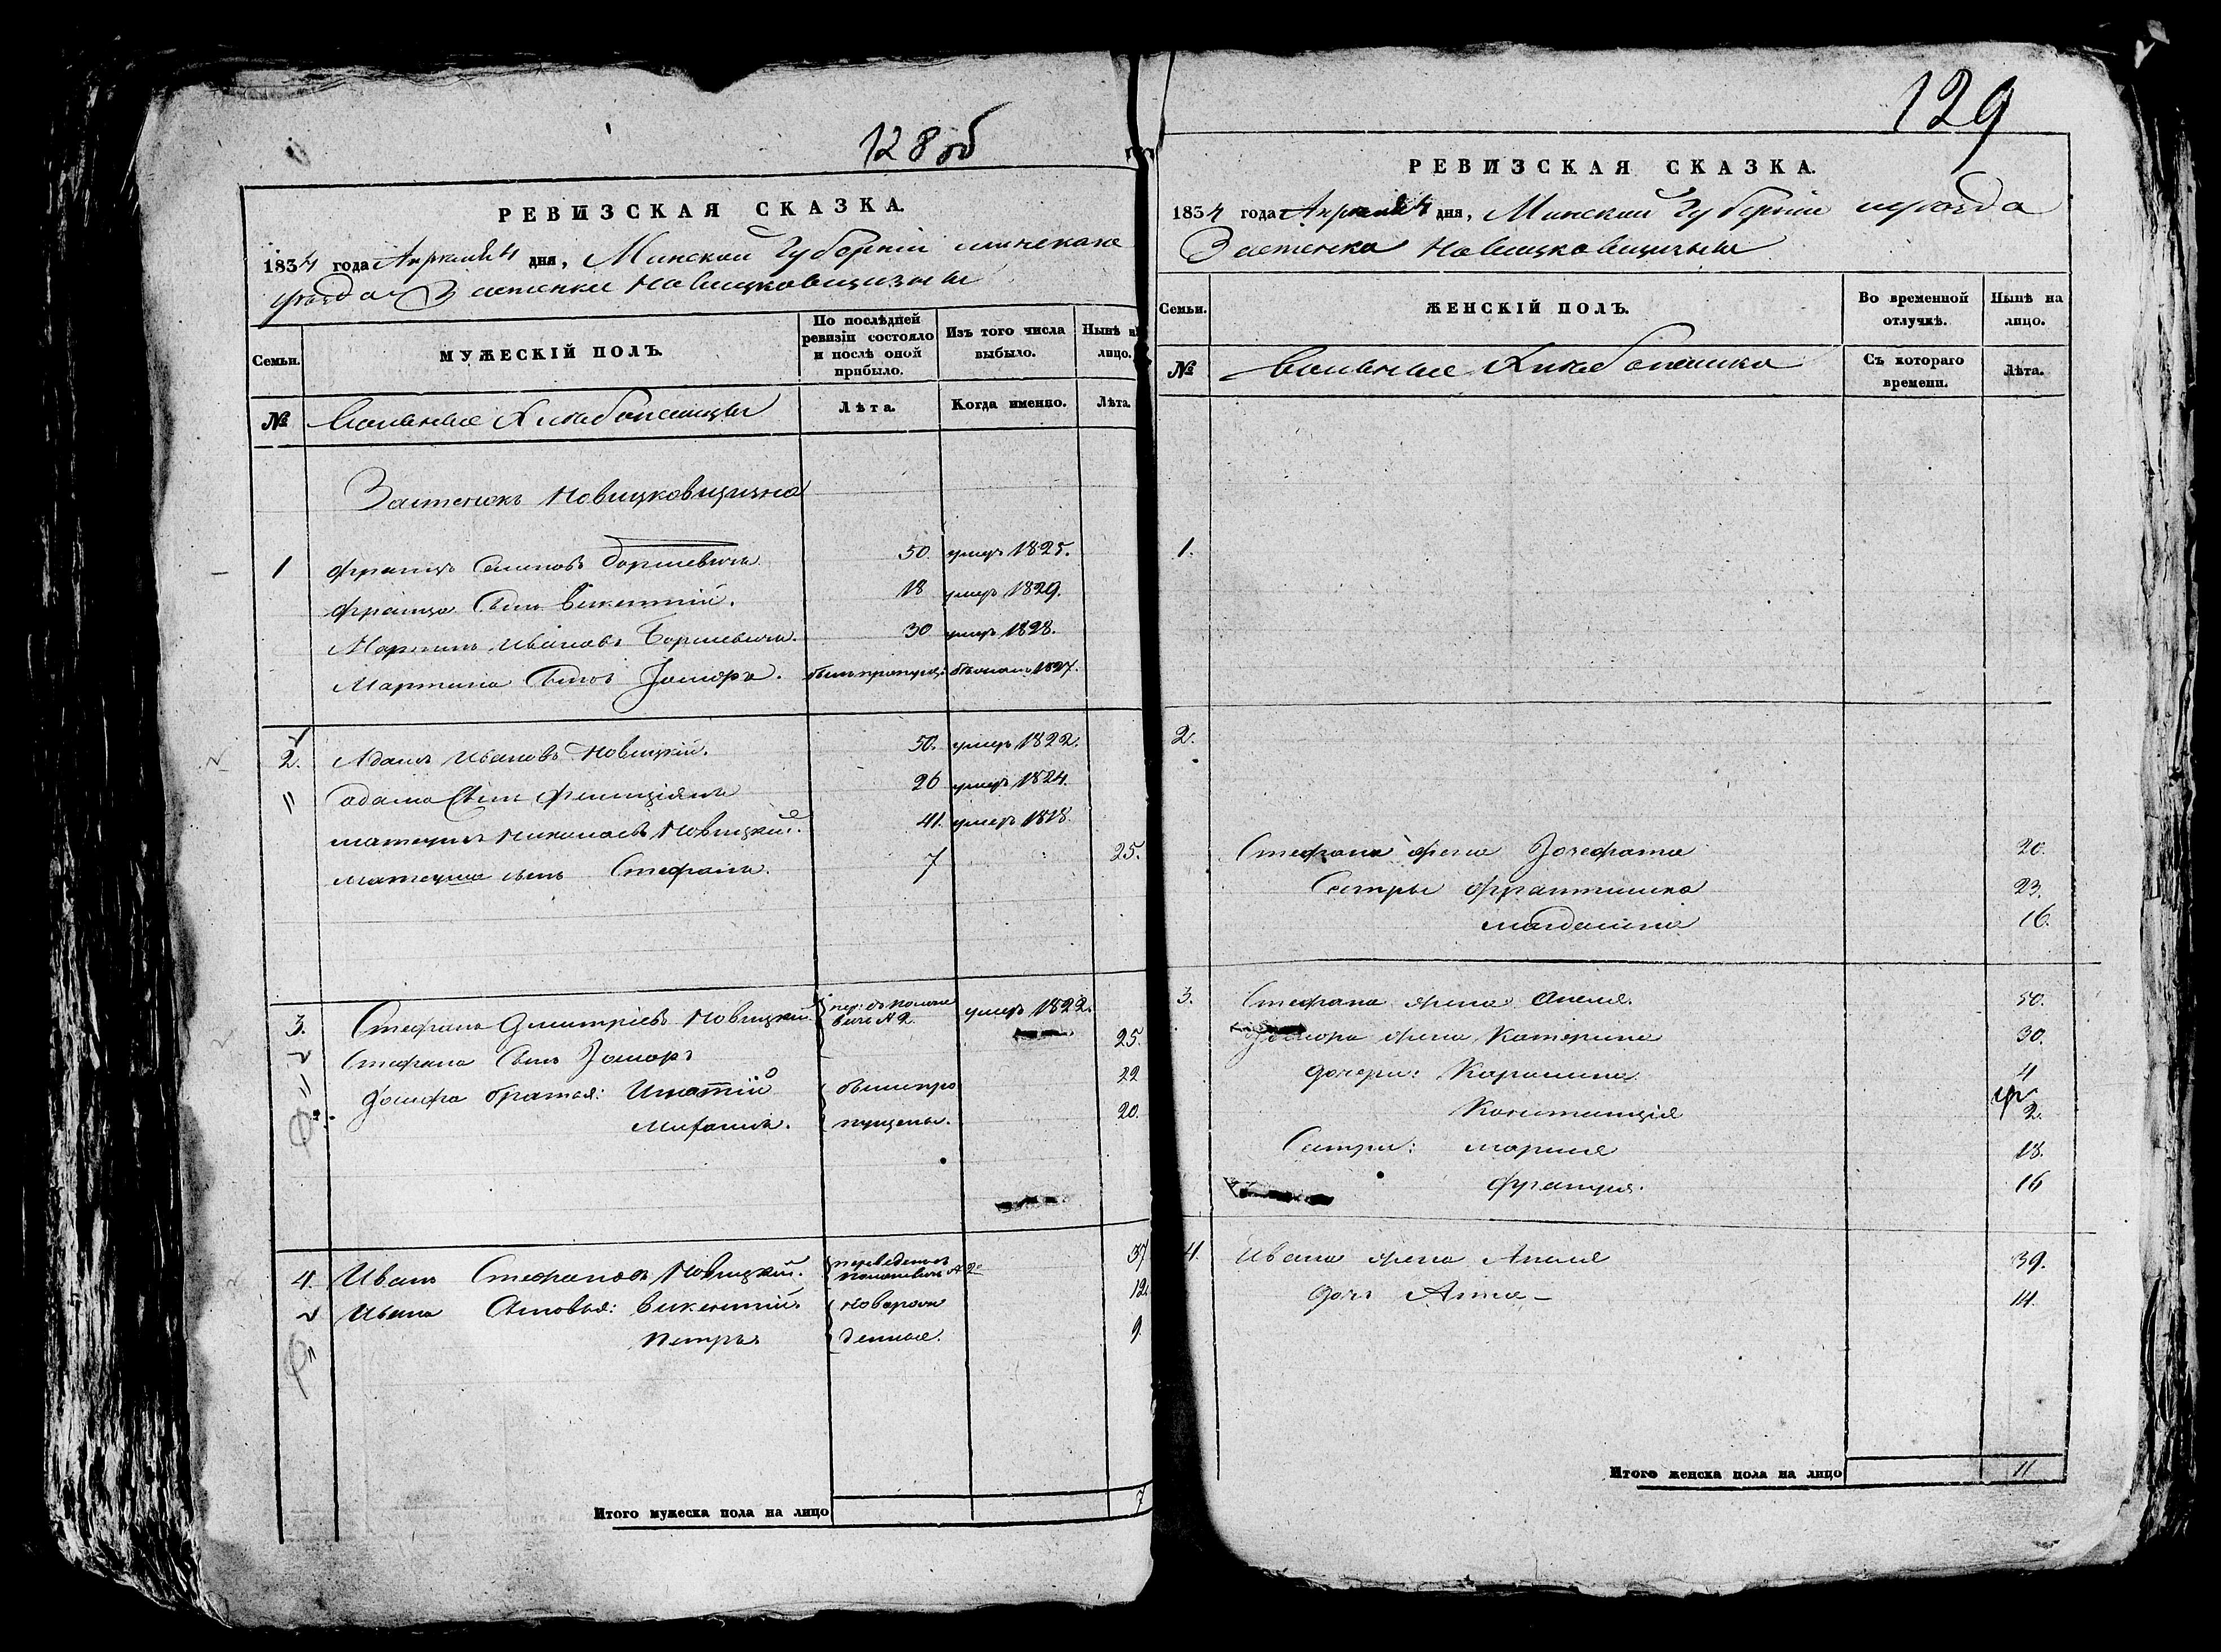 128об
РЕВИЗСКАЯ СКАЗКА.
1834 года Апреля 4 дня, Минской Губернiи минскаго
уѣзда Застенки Новицковщизны
Семьи.
МУЖЕСКІЙ ПОЛЪ.
По послѣдней ревизіи состояло и послѣ оной прибыло.
Изъ того числа выбыло.
Нынѣ на лицо.
№
Вольные Хлебопашцы
Лѣта.
Когда именно.
Лѣта.
Застенокъ Новицковщизна
1 Францъ Борисевичъ 50. умеръ 1825.
Франца Сынъ Викентій. 18 умеръ 1829.
Мартинъ Ивановъ Борисевичъ. 30 умеръ 1828.
Мартина Сынъ 1827.
2. Адамъ Ивановъ Новицкій. 50. умеръ 1822.
Адама Сынъ Фелиціянъ 26 умеръ 1824.
Матеушъ Новицкій. 41. умеръ 1818.
Матеуша сынъ Стефанъ. 7 25.
3. Стефанъ Дмитріевъ Новицкій. умеръ 1822.
Стефана Сынъ Іосифъ 25.
Іосифа братья: Игнатій были про 22
Михаилъ. пущены. 20.
4. Иванъ Стефановъ Новицкій. переведенъ 37
Ивана Сыновья: Викентій новорож 12
Петръ денные. 9.
Итого мужеска пола на лицо 7
129
РЕВИЗСКАЯ СКАЗКА.
1834 года Апреля 4 дня, Минской Губерніи уѣзда
Застенка Новицковщизны
Семьи.
ЖЕНСКІЙ ПОЛЪ.
Во временной отлучкѣ.
Нынѣ на лицо.
№
Вольные Хлебопашки
Съ котораго времени.
Лѣта.
1.
2.
Стефана жена Іозефата 20.
Сестры Франтишка 23.
Магдалина 16.
3. Стефана жена Анеля. 50.
Іосифа жена Катерина 30.
Дочери: Каролина 4
Констанція 2.
Сестры: Марыля 18.
16
4. Ивана жена Анеля 39.
Дочь Анна 14.
Итого женска пола на лицо 11